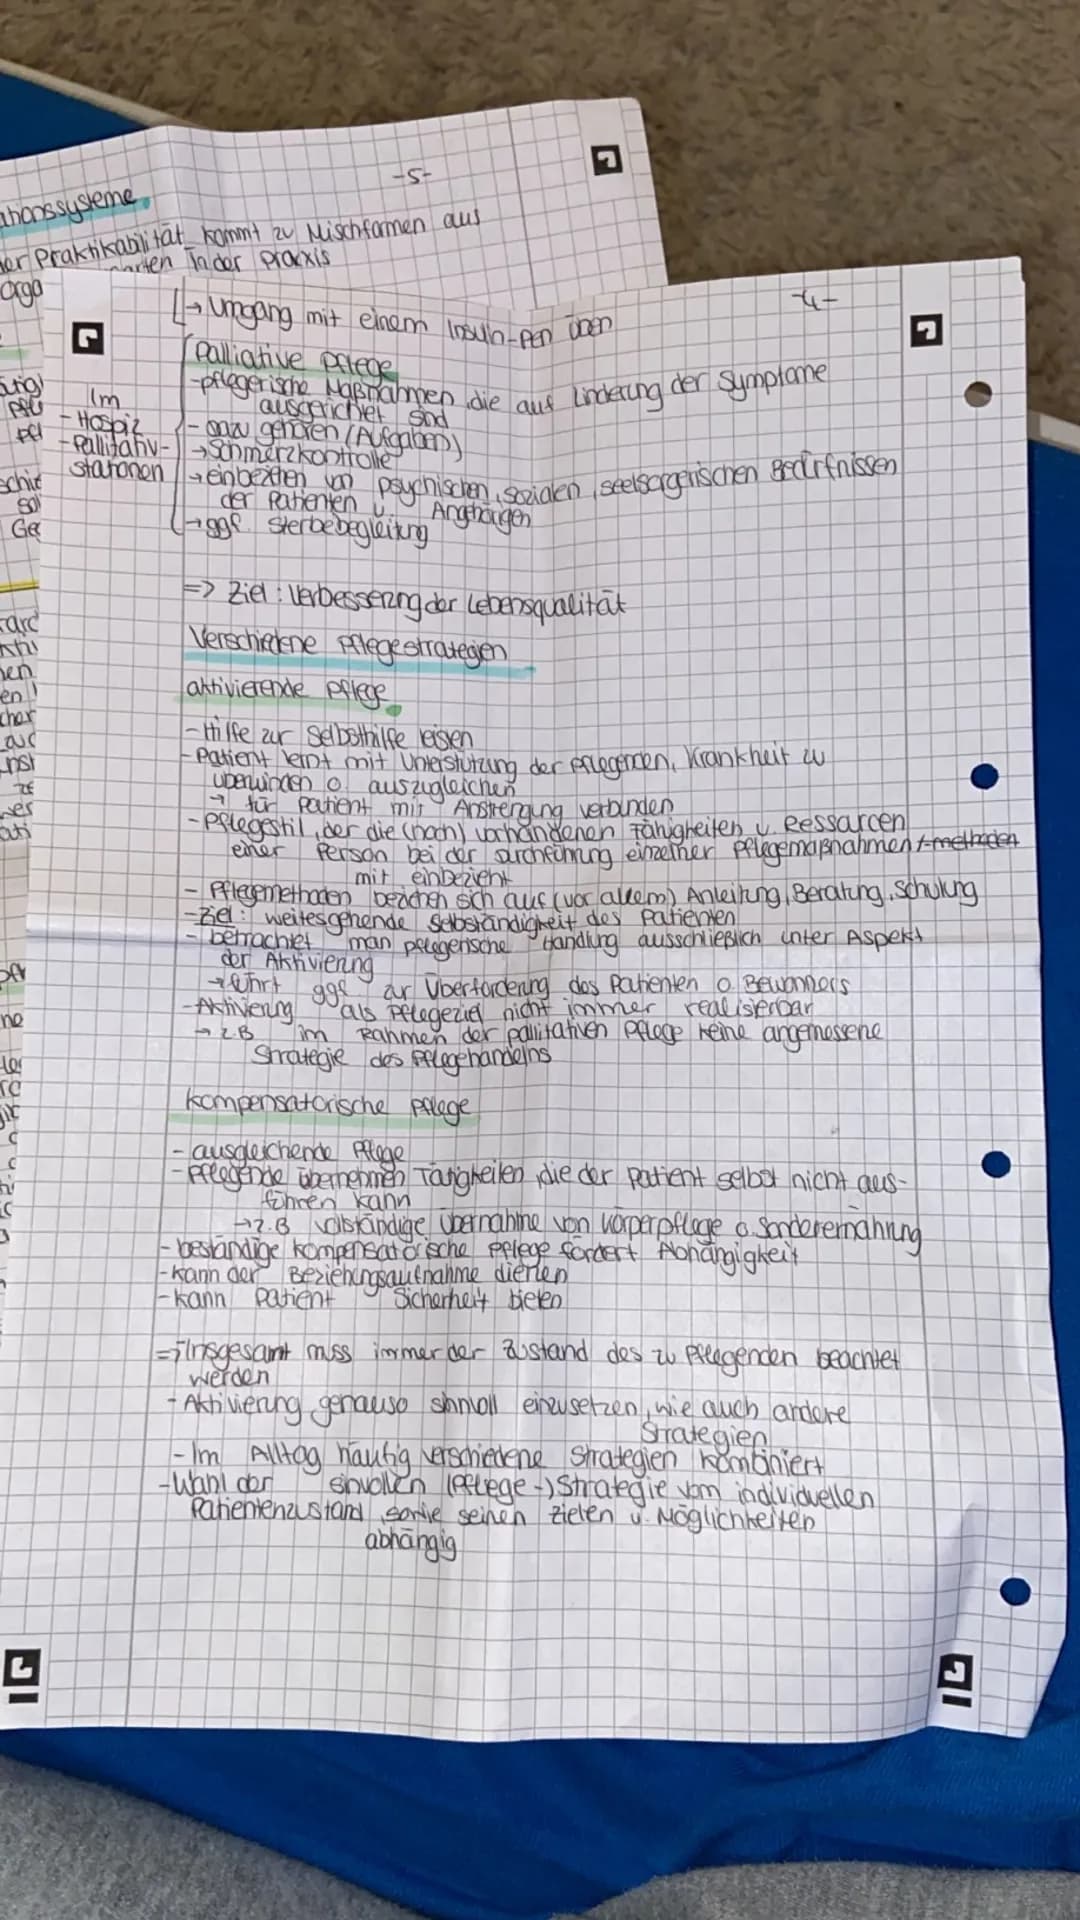 -5-
ationssysteme
der Praktikabilität kommt zu Mischformen aus
in der praxis
orga
-4-
└→ Umgang mit einem Insulin-Pen üben
Palliative Pflege
-pflegerische Maßnahmen, die auf Linderung der Symptome
ausgerichtet sind
Im
- Hospiz
- Pallitativ-
stationen
- dazu gehören (Aufgaben)
→ Schmerzkontrolle
→ einbeziehen von psychischen, sozialen, seelsorgerischen Bedürfnissen
der Patienten u. Anghörigen
→ ggf. Sterbebegleitung
=> Ziel: Verbesserung der Lebensqualität
Verschiedene Pflegestrategien
aktivierende Pflege
- Hilfe zur Selbsthilfe leisen
- Patient lernt mit Unterstützung der Pflegenden, Krankheit zu
überwinden o. auszugleichen
→ für Patient mit Anstrengung verbunden
- Pflegestil, der die (noch) vorhandenen Fähigkeiten u. Ressarcen
einer Person bei der durchführung einzelner Pflegemaßnahmen +-methoden
mit einbezieht
- Pflegemethoden beziehen sich auf (vor allem) Anleitung, Beratung, Schulung
- Ziel: weitesgehende Selbständigkeit des Patienten
- betrachtet man pflegerische Handlung ausschließlich unter Aspekt
der Aktivierung
→ führt ggf. zur Überforderung des Patienten o. Bewohners
- Aktivierung als Pflegeziel nicht immer realisierbar
→ z.B im Rahmen der pallitativen Pflege keine angemessene
Strategie des Pflegehandelns
kompensatorische Pflege
- ausgleichende Pflege
- Pflegende übernehmen Tätigkeiten, die der Patient selbst nicht aus-
führen kann
→ z.B vollständige Übernahme von Körperpflege o. Sonderernährung
- beständige kompensatorische Pflege fördert Abhängigkeit
- kann der Beziehungsaufnahme dienen
- kann Patient Sicherheit bieten
=> Insgesamt muss immer der Zustand des zu Pflegenden beachtet
werden
- Aktivierung genauso sinnvoll einzusetzen, wie auch andere
Strategien
- Im Alltag häufig verschiedene Strategien kombiniert
- Wahl der sinvollen (Pflege-) Strategie vom individuellen
Patientenzustand, sowie seinen Zielen u. Möglichkeiten
abhängig